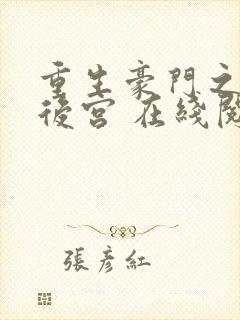 重生豪門之
後宮 在綫閱
張彥紅